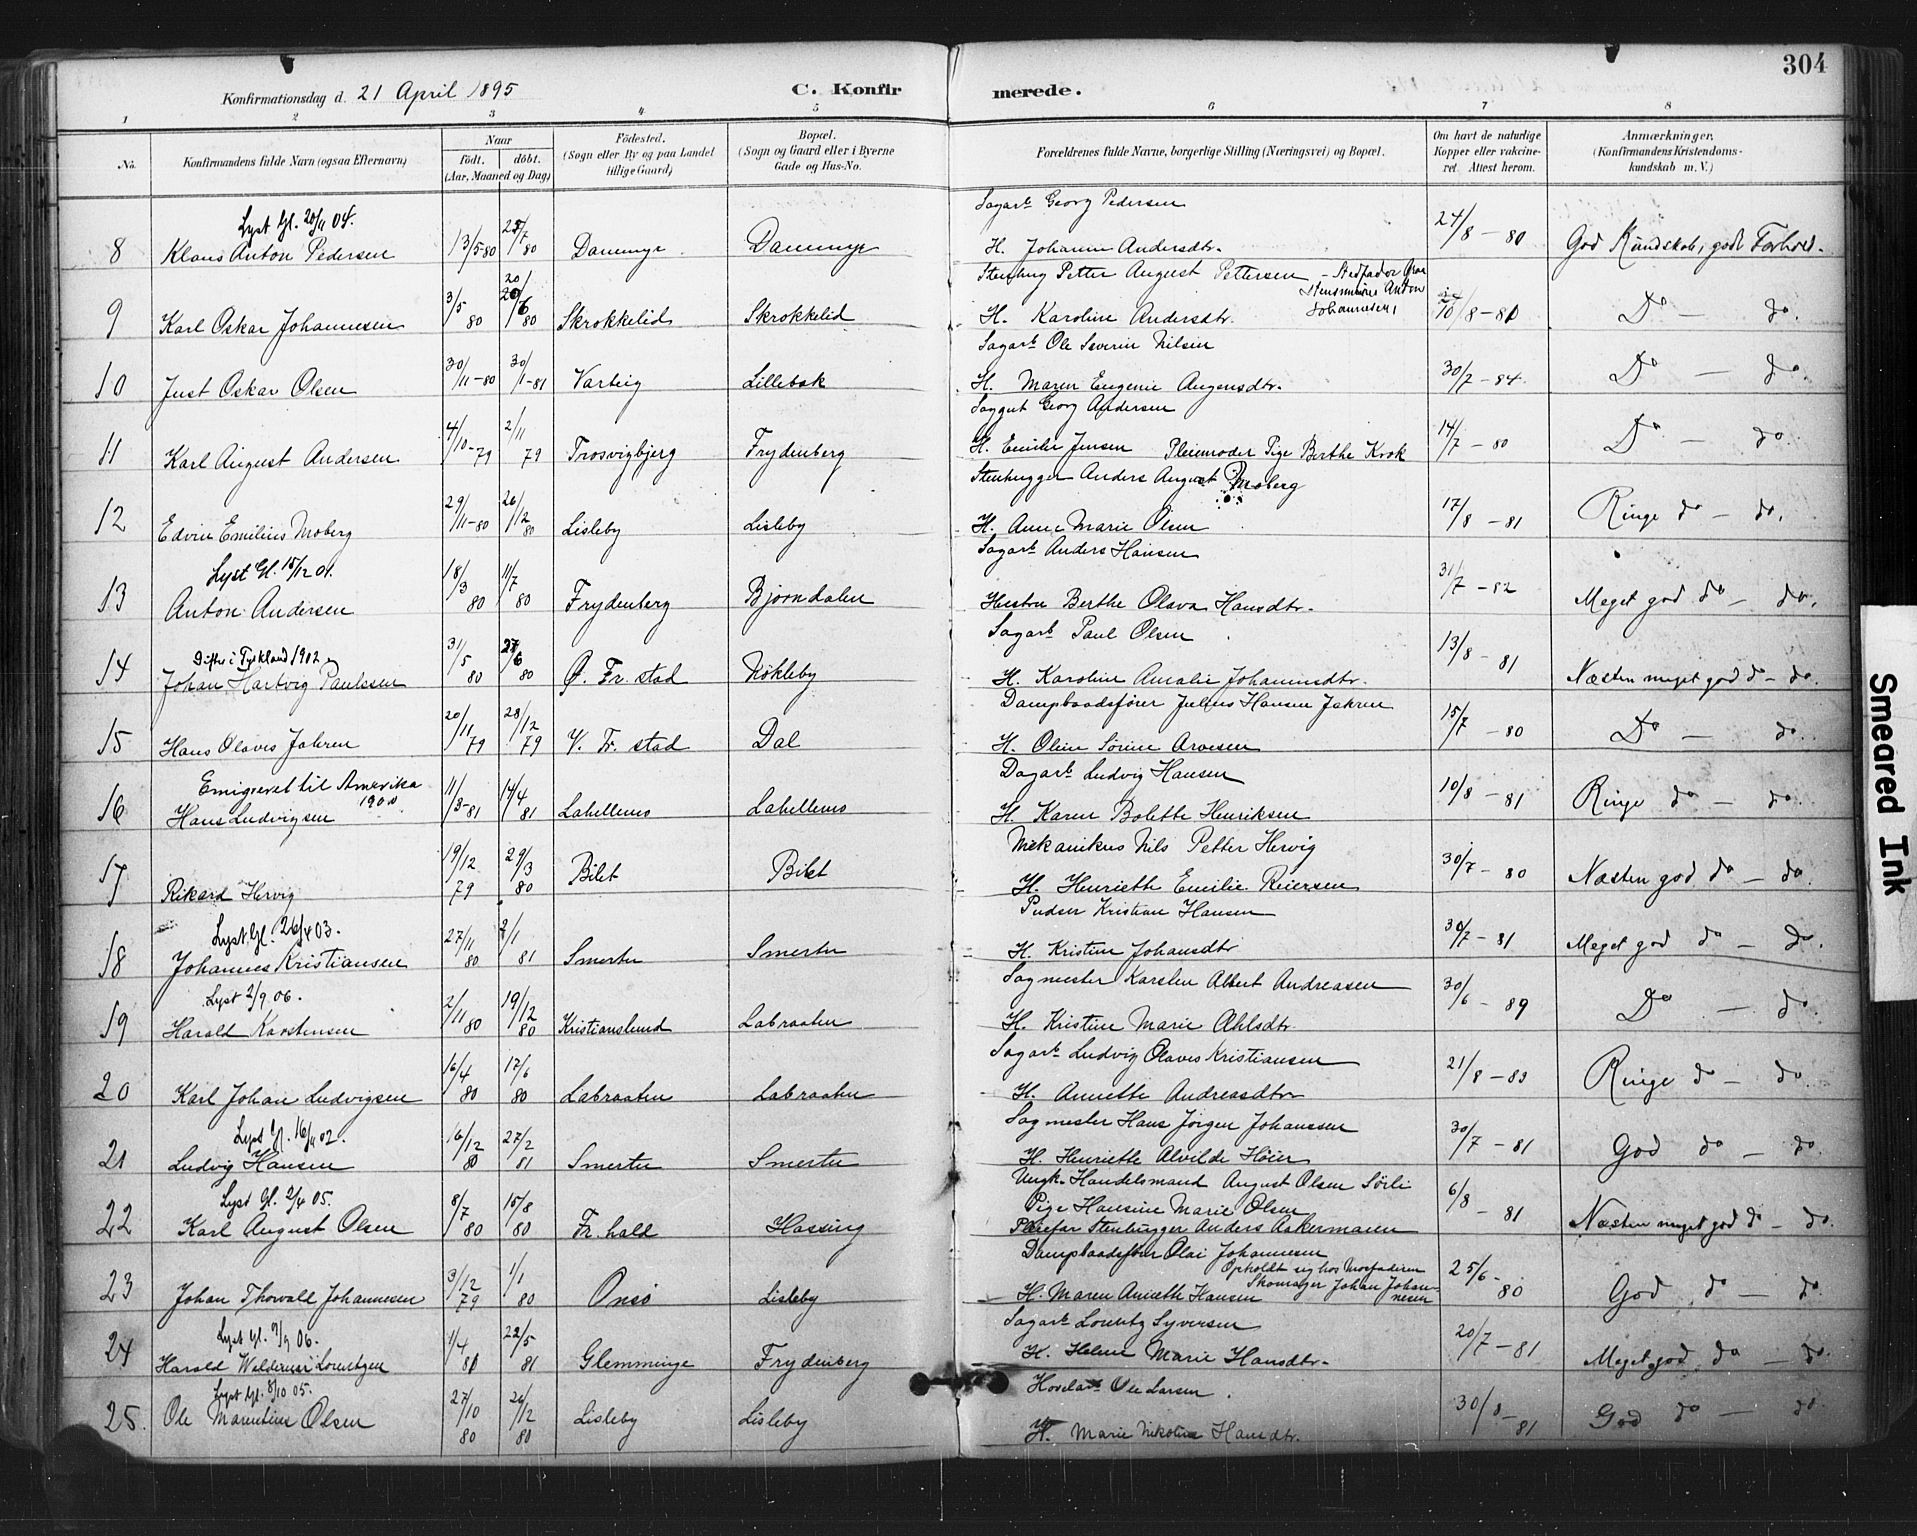 304
Konfirmationsdag d. 21 April 1895
C. Konfir
merede.
1 2 3 4 5 6 7 8
No.
Konfirmandens fulde Navn (ogsaa Efternavn)
Naar
födt. döbt.
(Aar, Maaned og Dag)
Födested.
(Sogn eller By og paa Landet
tillige Gaard)
Bopæl.
(Sogn og Gaard eller i Byerne
Gade og Hus-No.
Forældrenes fulde Navne, borgerlige Stilling (Næringsvei) og Bopæl.
Om havt de naturlige
Kopper eller vakcine-
ret. Attest herom.
Anmærkninger.
(Konfirmandens Kristendoms-
kundskab m. V.)
Lyst Gl. 20/11 04.
Sagarb. Georg Pedersen
8 Klaus Anton Pedersen 13/5 80 25/7 80 Dammyr Dammyr H. Johanne Andersdtr. 24/8 - 80 God Kundskab, godt Forhold.
Stenhug Petter August Pettersen - Stedfader Graa
stensminør Anton
Johannesen
9 Karl Oskar Johannesen 3/5 80 20/6 80 Skrokkelid Skrokkelid H. Karoline Andersdtr. 10/8 - 81 Do - do.
Sagarb. Ole Severin Nilsen
10 Just Oskar Olsen 30/11 - 80 30/1 - 81 Varteig Lillebæk H. Maren Eugenie Augensdtr. 30/7 - 84. Do - do.
Saggut Georg Andersen
11 Karl August Andersen 4/10 - 79 2/11 79 Trosvigbjerg Frydenberg H. Emilie Jensen Pleiemoder Pige Berthe Krok 14/7 - 80 Do - do.
Stenhugger Anders August Moberg
12 Edvin Emilius Moberg 29/11 - 80 26/12 80 Lisleby Lisleby H. Anne Marie Olsen 17/8 - 81 Ringe do - do.
Lyst Gl. 15/12 01.
Sagarb. Anders Hansen
13 Anton Andersen 18/3 80 11/7 80 Frydenberg Bjørndalen Hustru Berthe Olava Hansdtr. 31/7 - 82 Meget god do - do.
Døbt i Tyskland 1902
Sagarb. Paul Olsen
14 Johan Hartvig Paulssen 31/5 80 27/6 80 Ø. Fr. stad Nökleby H. Karoline Amalie Johannesdtr. 13/8 - 81 Næsten meget god do - do.
Dampbaadsfører Julius Hansen Jahren
15 Hans Olaves Jahren 20/11 79 28/12 79 V. Fr. stad Dal H. Oline Sørine Arvesen 15/7 - 80 Do - do.
Emigreret til Amerika
Dagarb. Ludvig Hansen
16 Hans Ludvigsen 11/3 - 81 14/4 81 Lahellemo Lahellemo H. Karen Bolette Henriksen 10/8 - 81 Ringe do - do.
Mekanikus Nils Petter Hervig
17 Rikard Hervig 19/12 79 29/3 80 Bilet Bilet H. Henriette Emilie Reiersen 30/7 - 80 Næsten god do - do.
Lyst Gl. 26/4 03.
Pudser Kristian Hansen
18 Johannes Kristiansen 27/11 80 2/1 81 Smertu Smertu H. Kristine Johansdtr 30/7 - 81 Meget god do - do.
Lyst 2/9 06.
Sagmester Karsten Albert Andreasen
19 Harald Karstensen 2/11 80 19/12 80 Kristianslund Labraaten H. Kristine Marie Ahlsdtr. 30/6 - 89 Do - do.
Sagarb. Ludvig Olaves Kristiansen
20 Karl Johan Ludvigsen 16/4 80 17/6 80 Labraaten Labraaten H. Annette Andreasdtr 21/8 - 83 Ringe do - do.
Lyst Gl. 16/4 02.
Sagmester Hans Jørgen Johanssen
21 Ludvig Hansen 16/12 80 27/2 81 Smertu Smertu H. Henriette Alvilde Høier 30/7 - 81 God do - do.
Lyst Gl. 2/4 05.
Ungk. Handelsmand August Olsen Sørli
Pige Hansine Marie Olsen
22 Karl August Olsen 8/7 80 15/8 80 Fr. hald Hassing Pleiefar Stenhugger Anders Aakermann 6/8 - 81 Næsten meget god do - do.
Dampbaadsfører Olai Johannesen
Opholdt sig hos Morfaderen
Skomager Johan Johan-
nesen
23 Johan Thorvald Johannesen 3/12 79 1/1 80 Onsö Lisleby H. Maren Annette Hansen 25/6 - 80 God do - do.
Lyst Gl. 9/9 06.
Sagarb. Lorentz Syversen
24 Harald Waldemar Lorentzen 1/4 81 22/5 81 Glemminge Frydenberg H. Helene Marie Hansdtr. 20/7 - 81 Meget god do - do.
Lyst Gl. 8/10 05.
Hovelarb. Ole Larsen
25. Ole Marentius Olsen 27/10 80 26/12 80 Lisleby Lisleby H. Marie Nikoline Hansdtr. 30/8 - 81 God do - do.
Smeared Ink